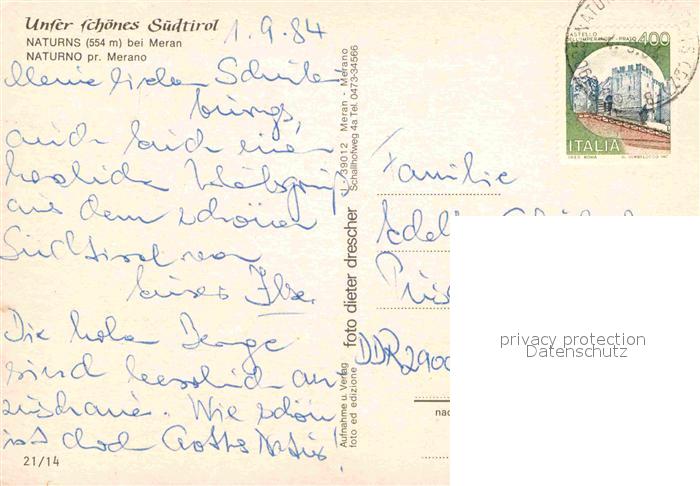 Unser schönes Südtirol
NATURNS (554 m) bei Meran
NATURNO pr. Merano
1.9.84
Meine lieben
auch Euch einen
herzlichen
aus dem schönen
Südtirol von
Eurer Ilse.
Die hohen Berge
sind herrlich an-
zuschauen. Wie schön
ist doch Gottes Natur!
21/14
Aufnahme u. Verlag
foto ed edizione
foto dieter drescher
I - 39012 Meran - Merano
Schallhofweg 4a Tel. 0473-34566
CASTELLO
DELL'IMPERATORE - PRATO
400
ITALIA
Familie
DDR 2900
privacy protection
Datenschutz